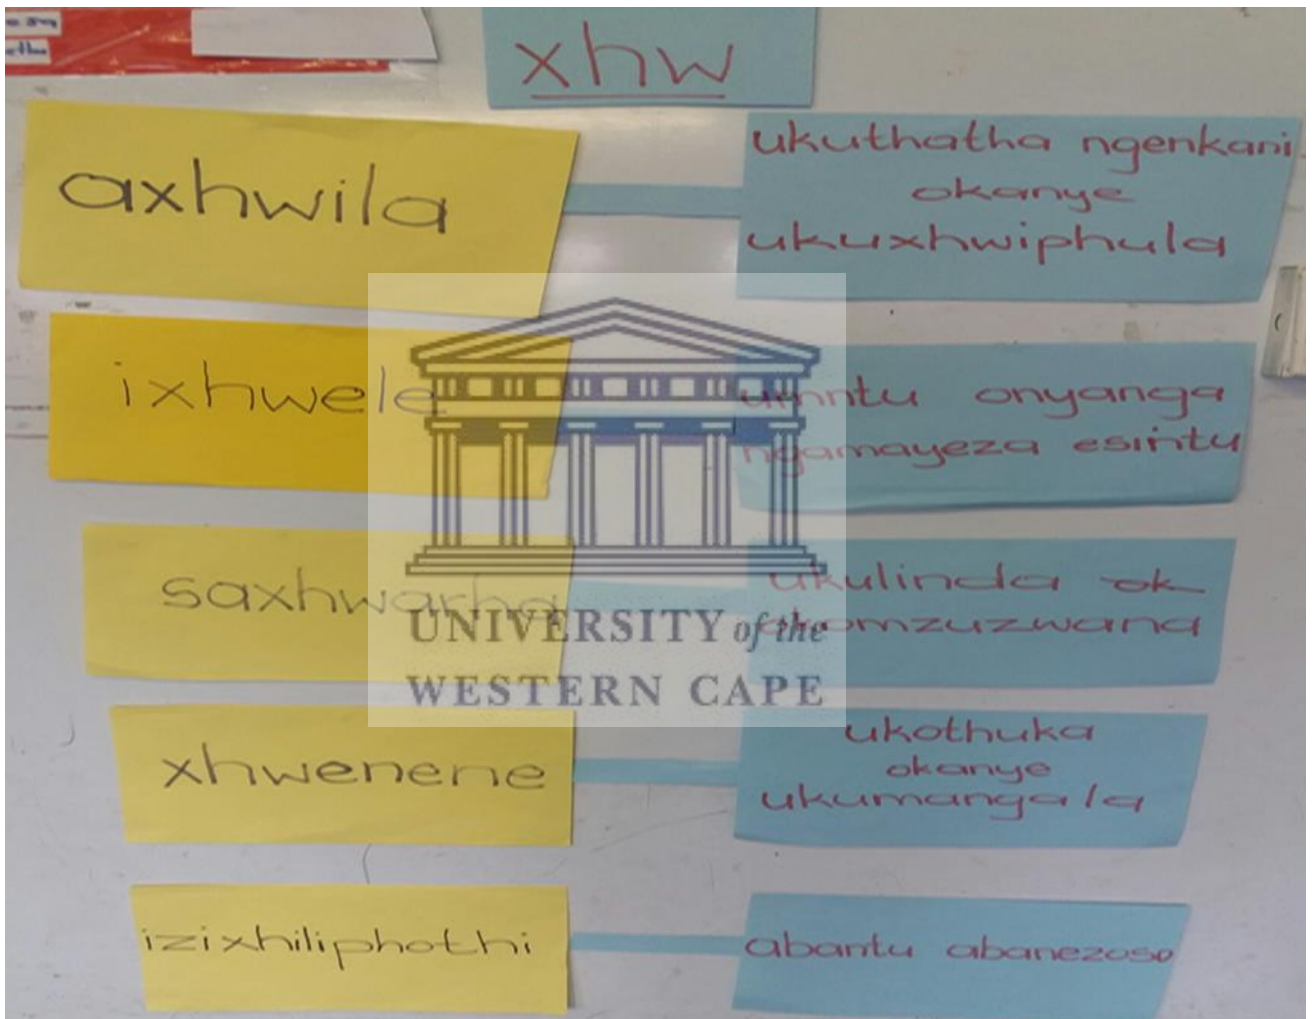 xhw
axhwila
ukuthatha ngenkani
okanye
ukuxhwiphula
ixhwele
umntu onyanga
ngamayeza esintu
saxhwarha
ukulinda ok
okomzuzwana
xhwenene
ukothuka
okanye
ukumangala
izixhiliphothi
abantu abanezoso
UNIVERSITY of the
WESTERN CAPE